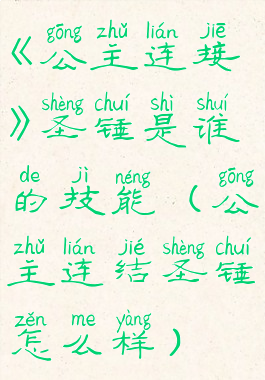 gōng zhǔ lián jiē
《公主连接
shèng chuí shì shuí
》圣锤是谁
de jì néng gōng
的技能（公
zhǔ lián jié shèng chuí
主连结圣锤
zěn me yàng
怎么样）